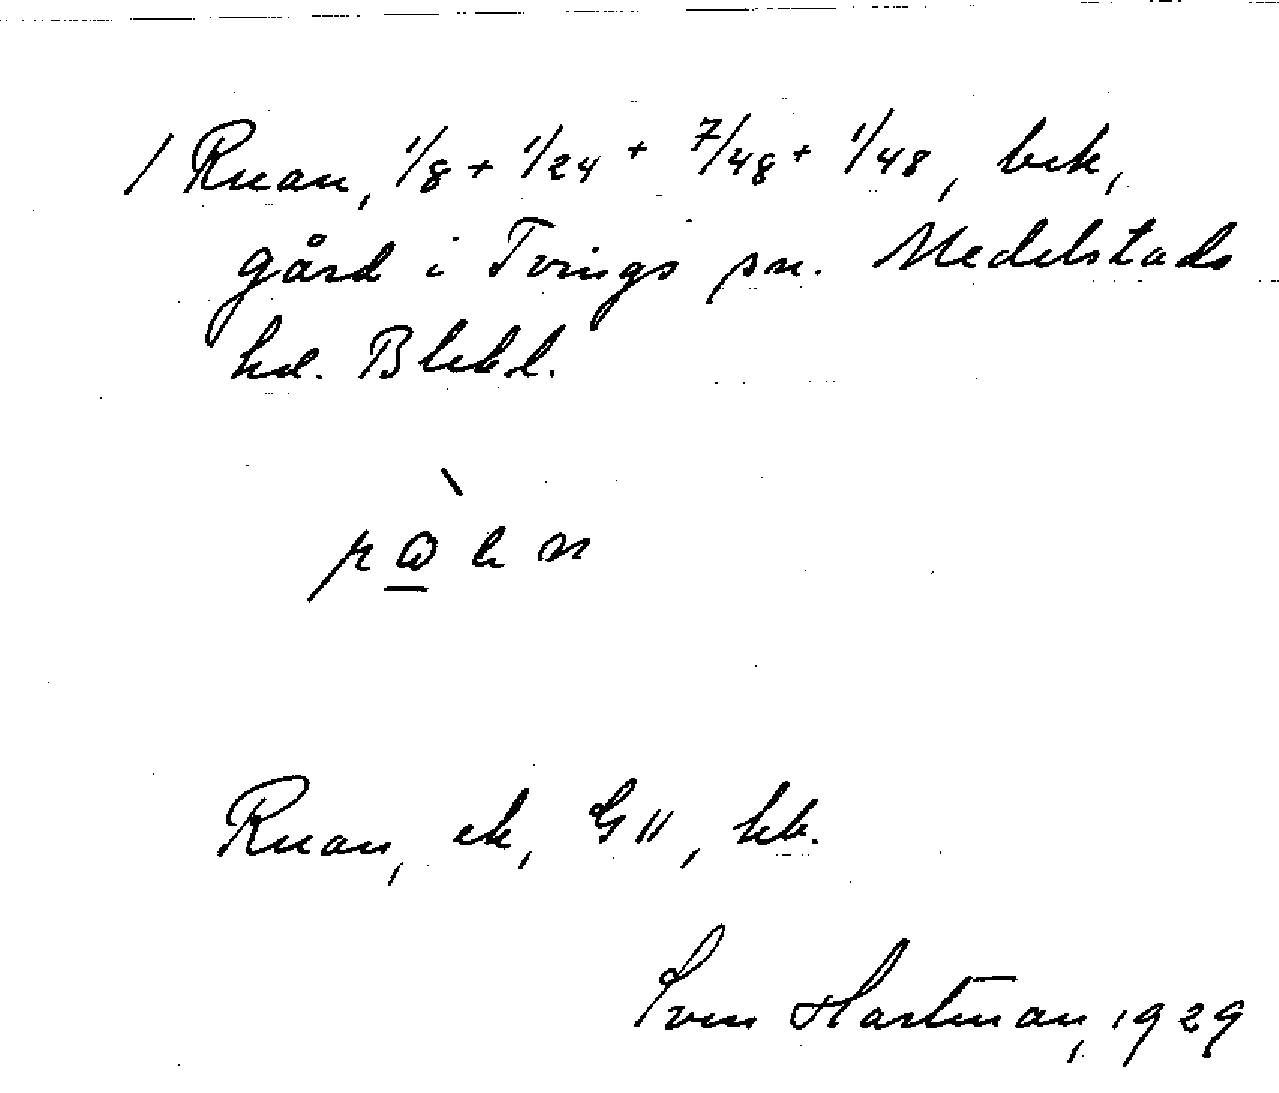 / Ruan, 1/8 + 1/24 + 7/48 + 1/48, bek,
gård i Tvings sn. Medelstads
hd. Blekl.
Ruan, ek, GII, kb.
Sven Hartman, 1929